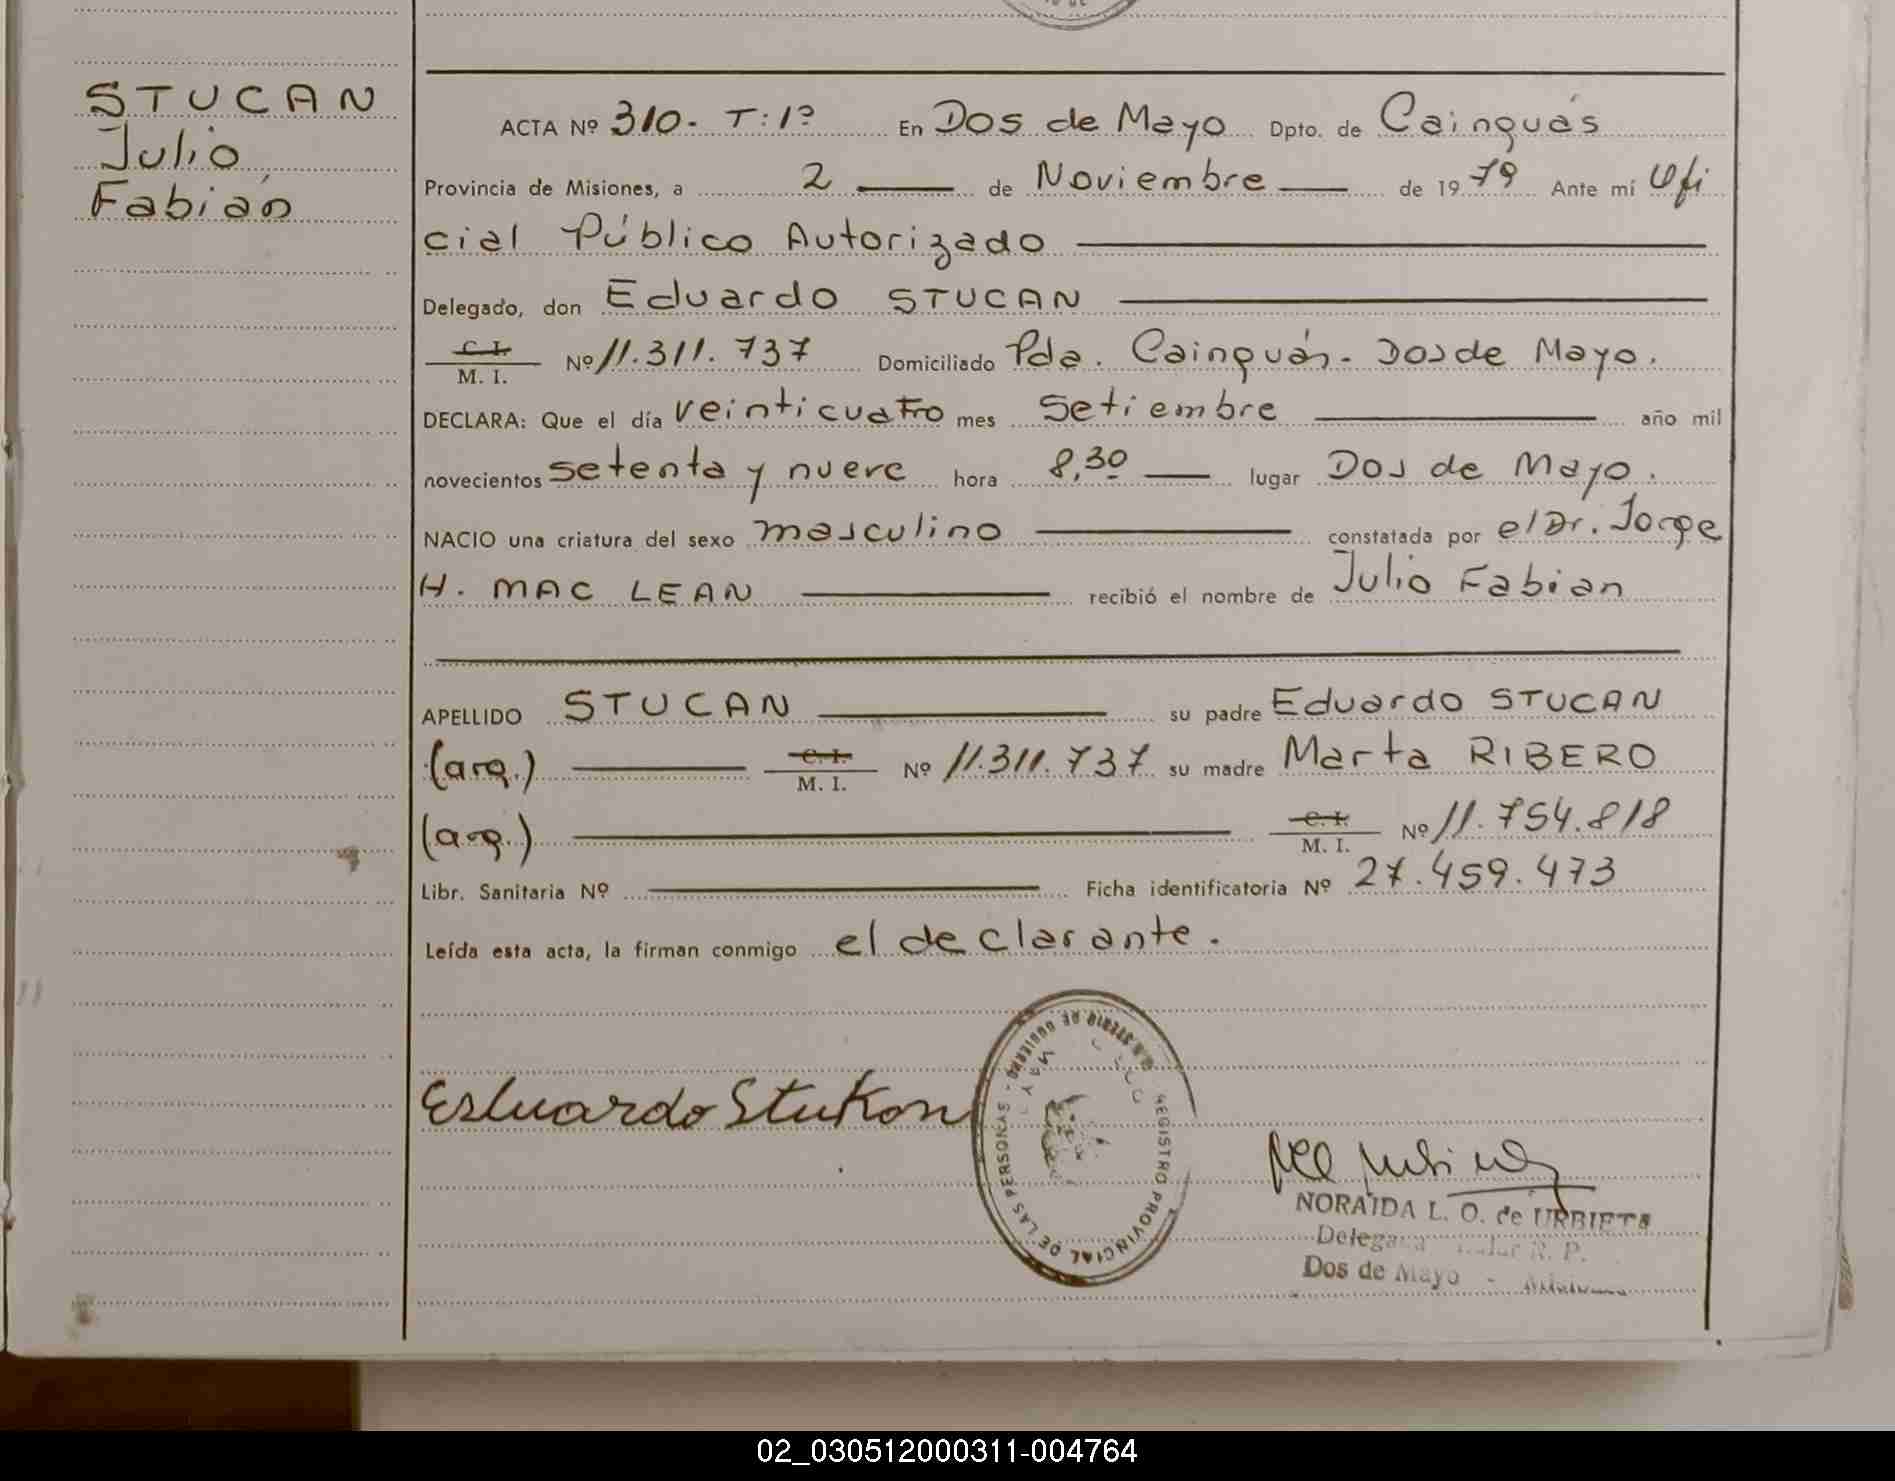 STUCAN
Julio
Fabián
ACTA Nº 310. T:1º En Dos de Mayo Dpto. de Cainguás
Provincia de Misiones, a 2 de Noviembre de 1979 Ante mí Ofi
cial Público Autorizado
Delegado, don Eduardo STUCAN
C. I.
M. I. Nº 11.311.737 Domiciliado Pda. Cainguás. Dos de Mayo.
DECLARA: Que el día veinticuatro mes Setiembre año mil
novecientos setenta y nueve hora 8,30 lugar Dos de Mayo.
NACIO una criatura del sexo masculino constatada por el Dr. Jorge
H. MAC LEAN recibió el nombre de Julio Fabian
APELLIDO STUCAN su padre Eduardo STUCAN
(arg.) C. I. M. I. Nº 11.311.737 su madre Marta RIBERO
(arg.) C. I. M. I. Nº 11.754.818
Libr. Sanitaria Nº Ficha identificatoria Nº 27.459.473
Leída esta acta, la firman conmigo el declarante.
REGISTRO PROVINCIAL DE LAS PERSONAS - DE GOBIERNO
Esluardo Stukon
NORAIDA L. O. de URBIETA
R. P.
Dos de Mayo -
02_030512000311-004764